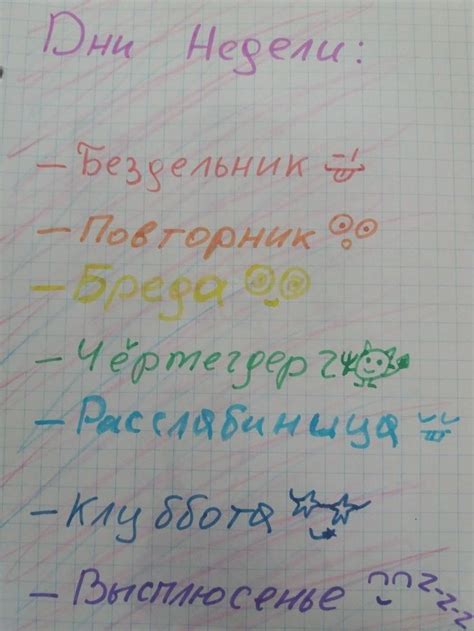 Дни Недели:
- Бездельник
- Повторник
- Бреда
- Чёртегдерг
- Расслабиница
- Клуббота
- Высплюсенье z-z-z